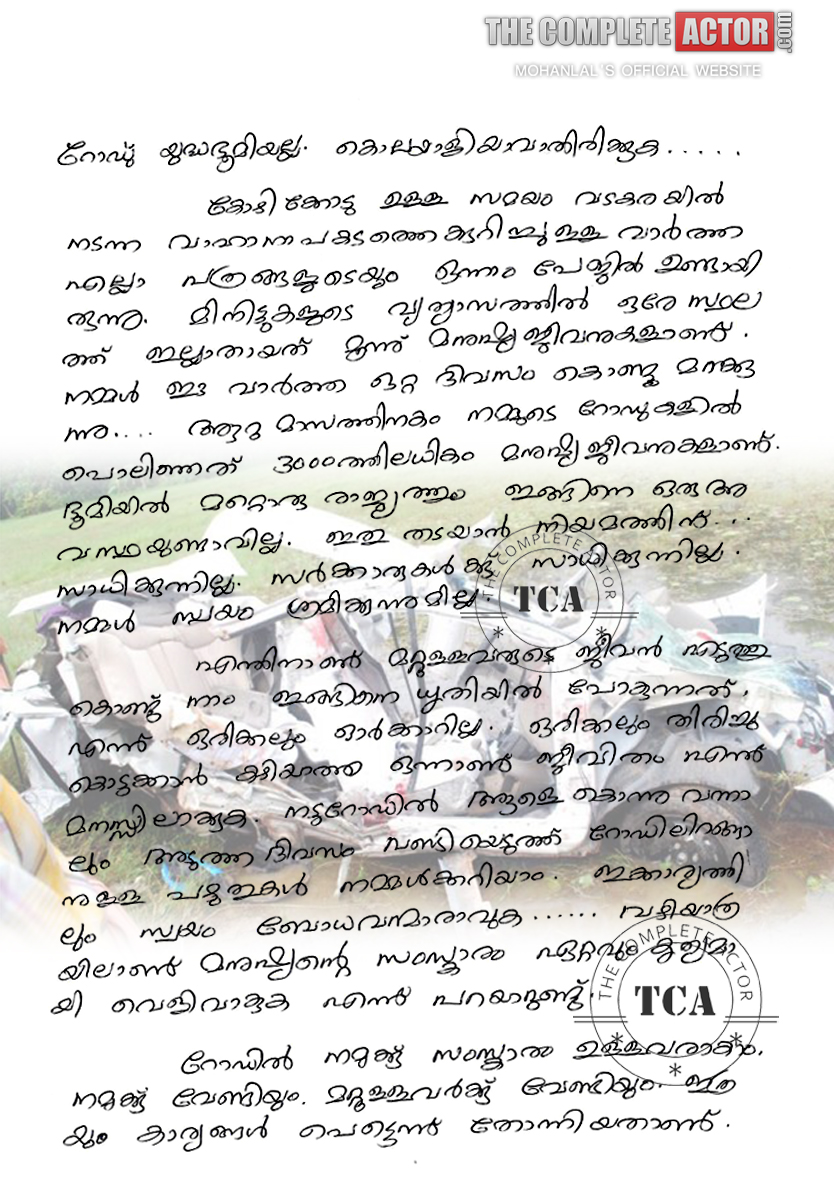 THE COMPLETE ACTOR.com
MOHANLAL'S OFFICIAL WEBSITE
റോഡ് യുദ്ധഭൂമിയല്ല. കൊലയാളിയാവാതിരിക്കുക.....
കോഴിക്കോട്ടു ഉള്ള സമയം വടകരയിൽ
നടന്ന വാഹാനപകടത്തെകുറിച്ചുള്ള വാർത്ത
എല്ലാ പത്രങ്ങളുടെയും ഒന്നാം പേജിൽ ഉണ്ടായി
രുന്നു. മിനിട്ടുകളുടെ വ്യത്യാസത്തിൽ ഒരേ സ്ഥല
ത്ത് ഇല്ലാതായത് മൂന്ന് മനുഷ്യജീവനുകളാണ്.
നമ്മൾ ഈ വാർത്ത ഒറ്റ ദിവസം കൊണ്ടു മറക്കു
ന്നു.... ആറു മാസത്തിനകം നമ്മുടെ റോഡുകളിൽ
പൊലിഞ്ഞത് 3000ത്തിലധികം മനുഷ്യജീവനുകളാണ്.
ഭൂമിയിൽ മറ്റൊരു രാജ്യത്തും ഇങ്ങിനെ ഒരു അ
വസ്ഥയുണ്ടാവില്ല. ഇതു തടയാൻ നിയമത്തിന്...
സാധിക്കുന്നില്ല. സർക്കാരുകൾക്ക് സാധിക്കുന്നില്ല.
നമ്മൾ സ്വയം ശ്രമിക്കുന്നുമില്ല.
THE COMPLETE ACTOR
TCA
എന്തിനാണ് മറ്റുള്ളവരുടെ ജീവൻ എടുത്തു
കൊണ്ടു നാം ഇങ്ങിനെ ധൃതിയിൽ പോകുന്നത്,
എന്ന് ഒരിക്കലും ഓർക്കാറില്ല. ഒരിക്കലും തിരിച്ചു
കൊടുക്കാൻ കഴിയാത്ത ഒന്നാണ് ജീവിതം എന്ന്
മനസ്സിലാക്കുക. നടുറോഡിൽ ആളെ കൊന്നു വന്നാ
ലും അടുത്ത ദിവസം വണ്ടിയെടുത്ത് റോഡിലിറങ്ങാ
നുള്ള പഴുതുകൾ നമ്മൾക്കറിയാം. ഇക്കാര്യത്തി
ലും സ്വയം ബോധവന്മാരാവുക...... വഴിയാത്ര
യിലാണ് മനുഷ്യന്റെ സംസ്കാരം ഏറ്റവും കൃത്യമാ
യി വെളിവാകുക എന്ന് പറയാറുണ്ട്.
THE COMPLETE ACTOR
TCA
റോഡിൽ നമുക്ക് സംസ്കാരം ഉള്ളവരാകാം,
നമുക്ക് വേണ്ടിയും. മറ്റുള്ളവർക്ക് വേണ്ടിയും. ഇത്ര
യും കാര്യങ്ങൾ പെട്ടെന്ന് തോന്നിയതാണ്.